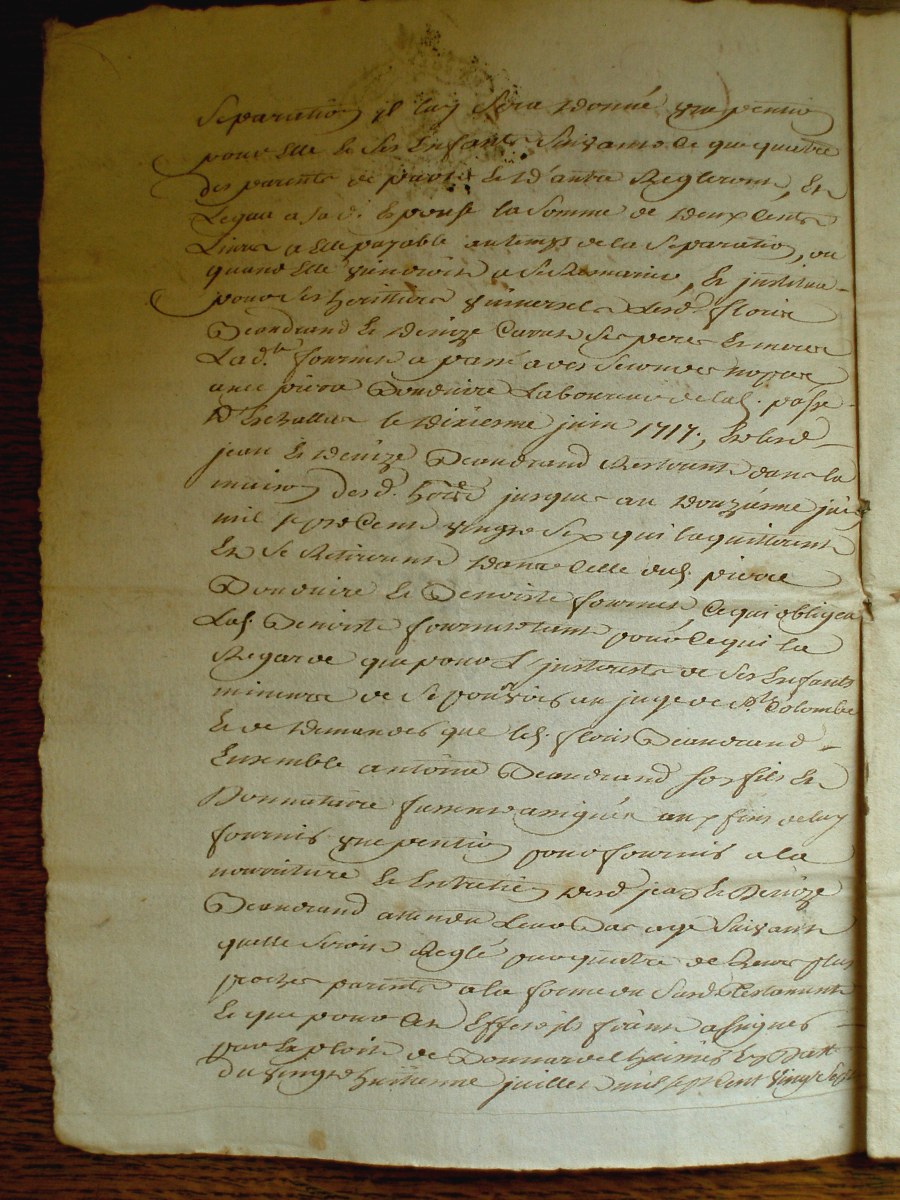 Separation il luy sera donné une pention
pour elle et ses Enfants suivant ce que quatre
des parents de part et d'autre Regleront, Et
Legue a sad. Epouse la somme de deux cents
Livres a elle payable au temps de la separation, ou
quand elle viendroit a se Remarier, Et institue
pour ses heritiers universels lesd. floris
Deandrand Et Denize ses pere Et mere
Lad.te fournier a passé a des secondes nopces
avec pierre Laboureur de lad. passe
le dixieme juin 1717, Et lesd
jean Et Denize Deandrand Resterent dans la
maison desd. jusques au douzieme
mil sept cent vingt six qui la quitterent
Et se Retirerent dans celle dud. pierre
Et Benoiste fournier, ce qui obligea
Lad. Benoiste fournier tant pour ce qui la
Regarde que pour l'interest de ses Enfants
mineurs de se pourvoir au juge de Ste Colombe
Et de demander que led. floris Deandrand
Ensemble antoine Deandrand son fils Et
Donnataire fussent assignés aux fins de luy
fournir une pention pour fournir a la
nourriture Et Entretien desd jean Et Denize
Deandrand attendu leur bas age suivant
quelle seroit Reglé par quatre de leurs plus
proches parents a la forme du susd. testament
Et que pour cet Effet ils furent assignés
par Exploit de Datté
du vingt huitieme juillet mil sept cent vingt sept